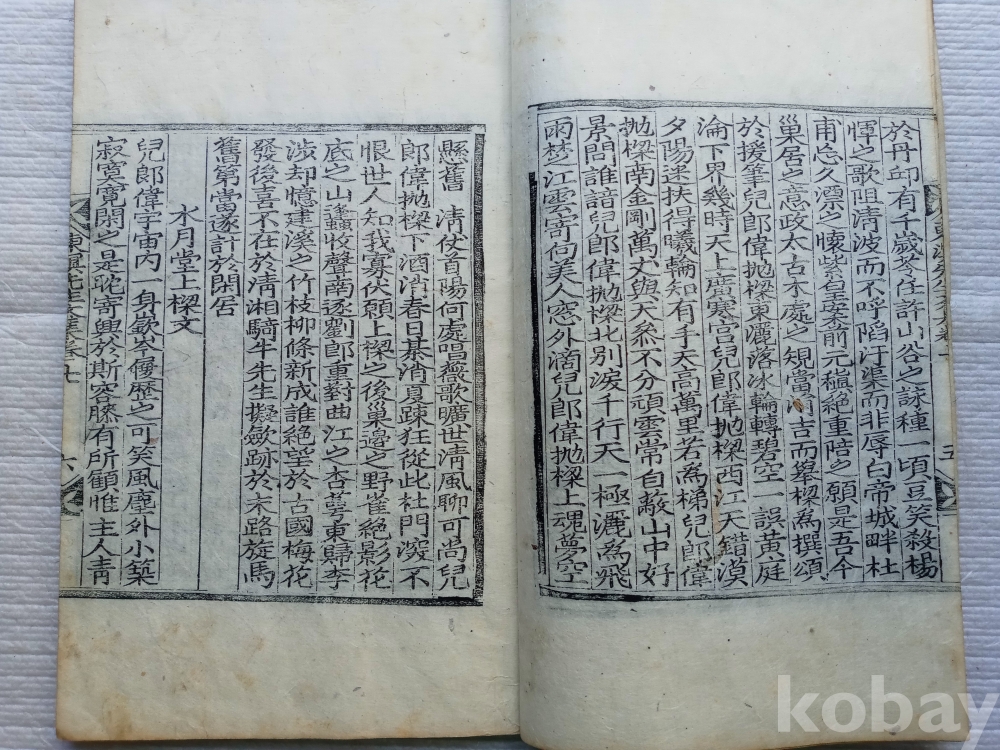 於丹邱有千歲苓任許山谷之詠種一頃豆笑殺楊
惲之歌阻淸波而不呼陷汙渠而非辱白帝城畔杜
甫念久漂之懷紫皇案前元稹絶重陪之願是吾今
巢居之意政太古木處之規當消吉而擧樑爲撰頌
於援筆兒郎偉拋樑東灑落冰輪轉碧空一誤黃庭
淪下界幾時天上廣寒宮兒郎偉拋樑西江天錯漠
夕陽迷扶得曦輪知有手天高萬里若爲梯兒郎偉
拋樑南金剛萬丈與天參不分頑雲常自蔽山中好
景問誰諳兒郎偉拋樑北別淚千行天一極灑爲飛
雨楚江雲寄向美人窓外滴兒郎偉拋樑上魂夢空
懸舊淸仗首陽何處唱薇歌曠世淸風聊可尙兒
郎偉拋樑下酒消春日碁消夏疎狂從此杜門深不
恨世人知我寡伏願上樑之後巢邊之野雀絶影花
底之山蠭收聲南逐劉郎重對曲江之杏萼東歸李
涉却憶建溪之竹枝柳條新成誰絶望於古國梅花
發後喜不在於淸湘騎牛先生擬歛跡於末路旋馬
舊第當遂計於閑居
水月堂上樑文
兒郎偉宇宙內一身嶔岑履歷之可笑風塵外小築
寂寞寬閑之是耽寄興於斯容膝有所顧惟主人靑
六
五
kobay